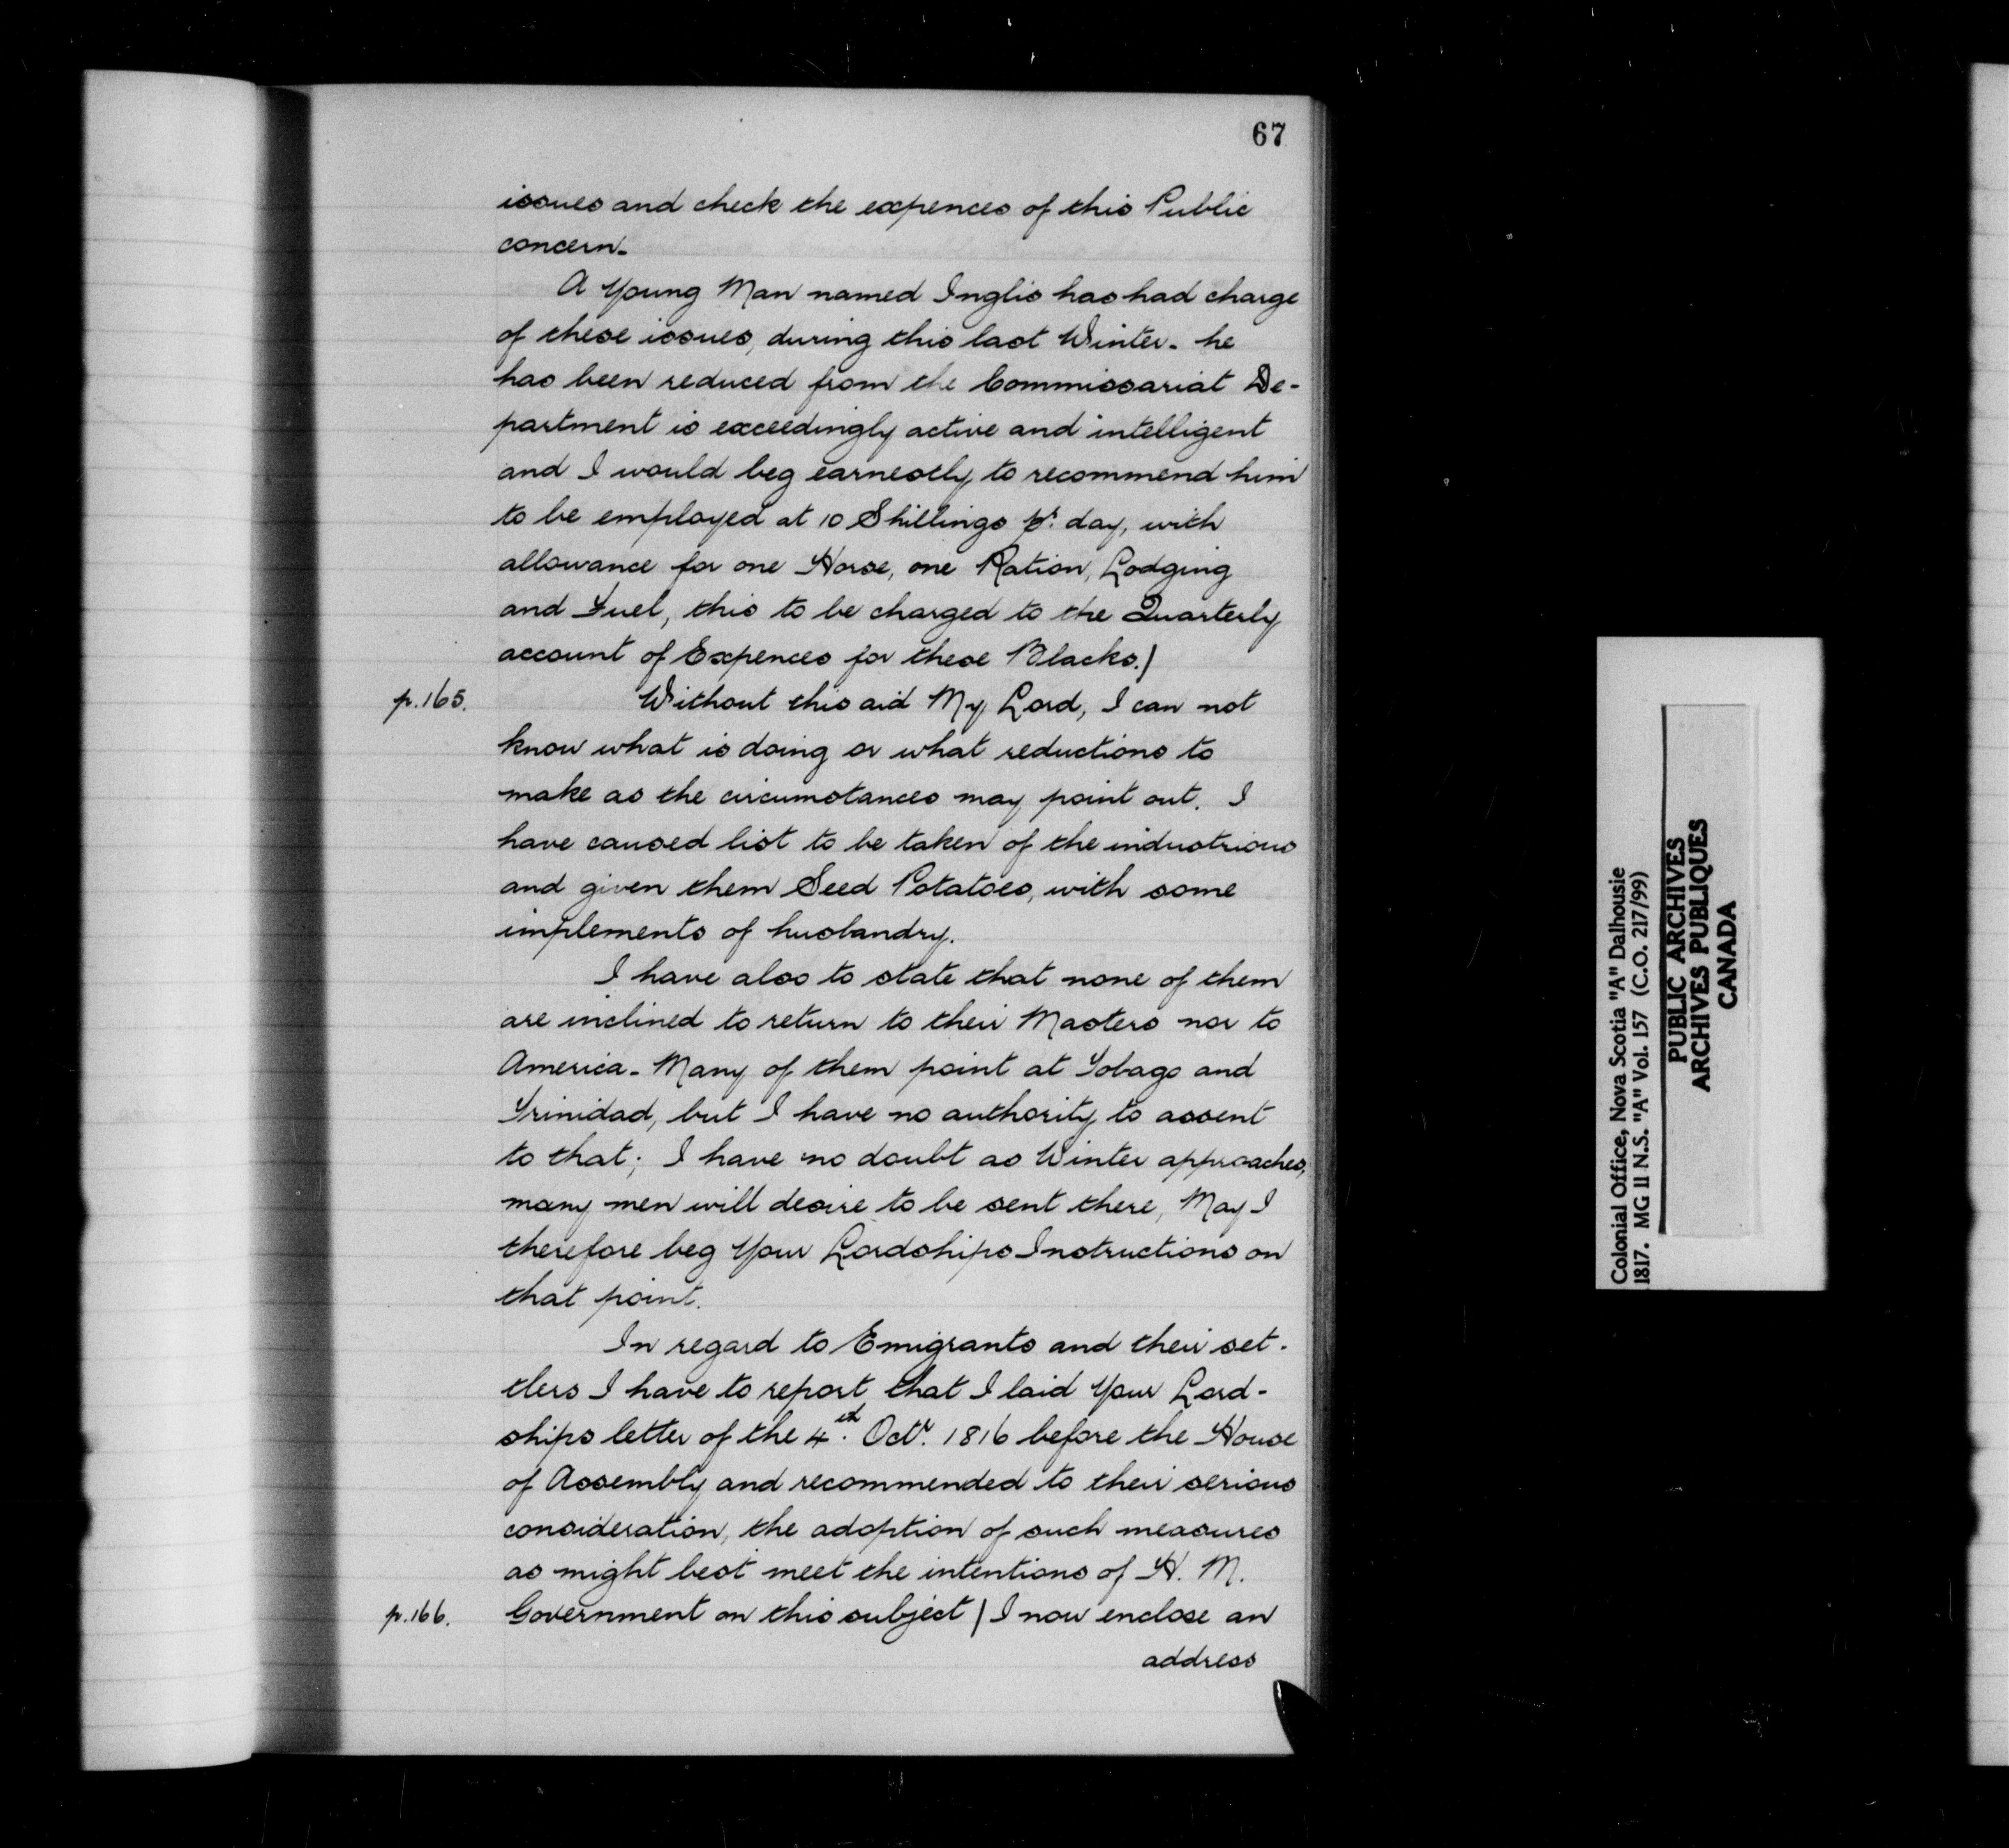 67
issues and check the expences of this Public
concern-
A Young Man named Inglis has had charge
of these issues, during this last Winter- he
has been reduced from the Commissariat De-
partment is exceedingly active and intelligent
and I would beg earnestly to recommend him
to be employed at 10 Shillings pr. day, with
allowance for one Horse, one Ration, Lodging
and Fuel, this to be charged to the Quarterly
account of Expences for these Blacks.)
p.165. Without this aid My Lord, I can not
know what is doing or what reductions to
make as the circumstances may point out. I
have caused list to be taken of the industrious
and given them Seed Potatoes, with some
implements of husbandry.
I have also to state that none of them
are inclined to return to their Masters nor to
America- Many of them point at Tobago and
Trinidad, but I have no authority to assent
to that; I have no doubt as Winter approaches,
many men will desire to be sent there, May I
therefore beg Your Lordships Instructions on
that point.
In regard to Emigrants and their set-
tlers I have to report that I laid Your Lord-
ships letter of the 4th. Octr. 1816 before the House
of Assembly and recommended to their serious
consideration, the adoption of such measures
as might best meet the intentions of H. M.
p.166. Government on this subject / I now enclose an
address
Colonial Office, Nova Scotia "A" Dalhousie
1817. MG 11 N.S. "A" Vol. 157 (C.O. 217/99)
PUBLIC ARCHIVES
ARCHIVES PUBLIQUES
CANADA